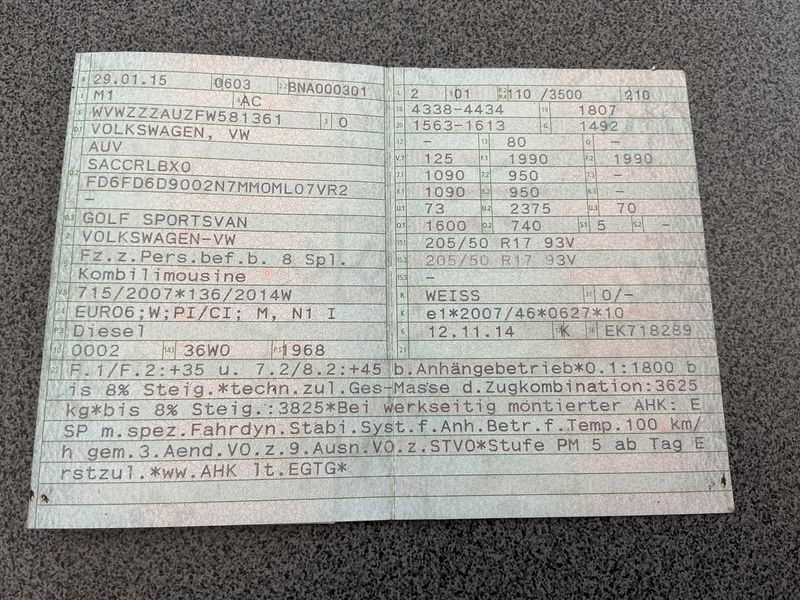 B 29.01.15 0603 2.2 BNA000301
J M1 4 AC
E WVWZZZAUZFW581361 3 0
D.1 VOLKSWAGEN, VW
AUV
D.2 SACCRLBX0
FD6FD6D9002N7MMOML07VR2
–
D.3 GOLF SPORTSVAN
2 VOLKSWAGEN-VW
5 Fz.z.Pers.bef.b. 8 Spl.
Kombilimousine
V.9 715/2007*136/2014W
14 EURO6;W;PI/CI; M, N1 I
P.3 Diesel
10 0002 14.1 36W0 P.1 1968
L 2 9 01 P.2 P.4 110 /3500 T 210
18 4338-4434 19 1807
20 1563-1613 G 1492
12 – 13 80 Q –
V.7 125 F.1 1990 F.2 1990
7.1 1090 7.2 950 7.3 –
8.1 1090 8.2 950 8.3 –
U.1 73 U.2 2375 U.3 70
O.1 1600 O.2 740 S.1 5 S.2 –
15.1 205/50 R17 93V
15.2 205/50 R17 93V
15.3 –
R WEISS 11 0/–
K e1*2007/46*0627*10
6 12.11.14 17 K 16 EK718289
21
22 F.1/F.2:+35 u. 7.2/8.2:+45 b.Anhängebetrieb*O.1:1800 b
is 8% Steig.*techn.zul.Ges-Masse d.Zugkombination:3625
kg*bis 8% Steig.:3825*Bei werkseitig montierter AHK: E
SP m.spez.Fahrdyn.Stabi.Syst.f.Anh.Betr.f.Temp.100 km/
h gem.3.Aend.VO.z.9.Ausn.VO.z.STVO*Stufe PM 5 ab Tag E
rstzul.*ww.AHK lt.EGTG*